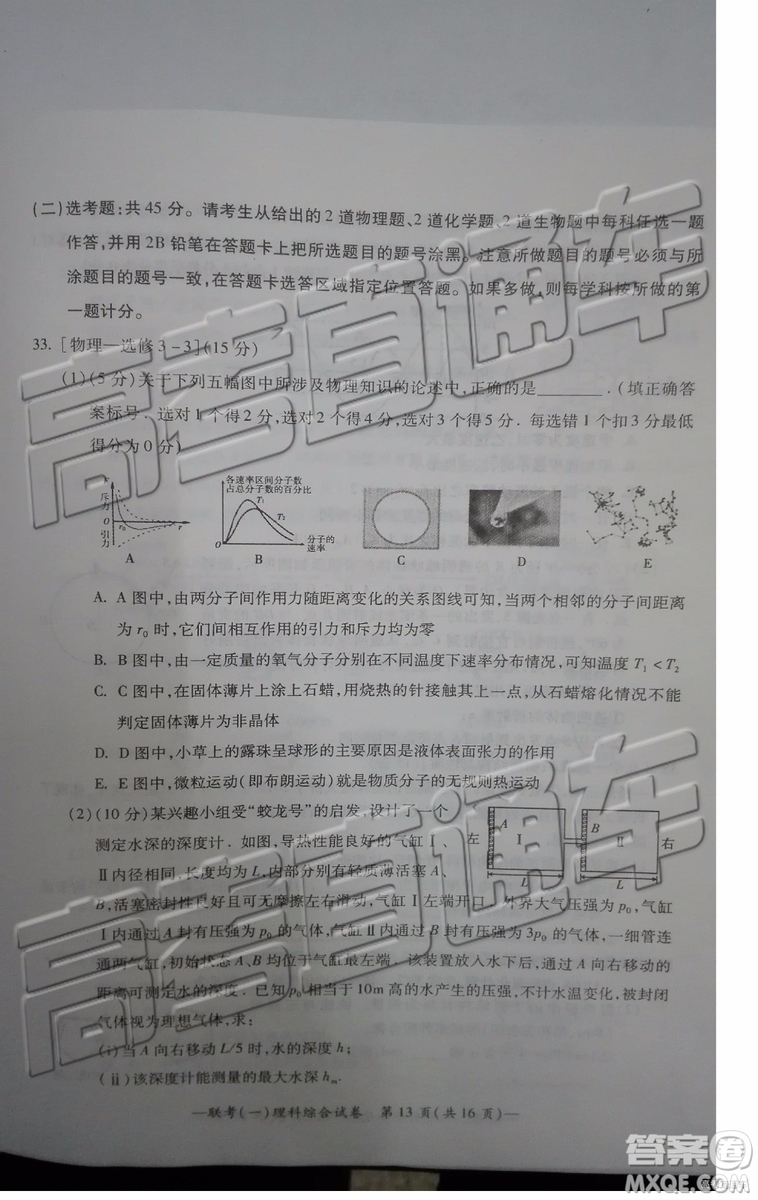 (二)选考题:共 45 分。请考生从给出的 2 道物理题、2 道化学题、2 道生物题中每科任选一题
作答,并用 2B 铅笔在答题卡上把所选题目的题号涂黑。注意所做题目的题号必须与所
涂题目的题号一致,在答题卡选答区域指定位置答题。如果多做,则每学科按所做的第
一题计分。
33. [物理—选修 3-3](15 分)
(1)(5 分)关于下列五幅图中所涉及物理知识的论述中,正确的是______.(填正确答
案标号.选对 1 个得 2 分,选对 2 个得 4 分,选对 3 个得 5 分.每选错 1 个扣 3 分最低
得分为 0 分)
斥力 O 引力 r₀ r
各速率区间分子数
占总分子数的百分比
T₁ T₂
分子的
速率
A B C D E
A. A 图中,由两分子间作用力随距离变化的关系图线可知,当两个相邻的分子间距离
为 r₀ 时,它们间相互作用的引力和斥力均为零
B. B 图中,由一定质量的氧气分子分别在不同温度下速率分布情况,可知温度 T₁<T₂
C. C 图中,在固体薄片上涂上石蜡,用烧热的针接触其上一点,从石蜡熔化情况不能
判定固体薄片为非晶体
D. D 图中,小草上的露珠呈球形的主要原因是液体表面张力的作用
E. E 图中,微粒运动(即布朗运动)就是物质分子的无规则热运动
(2)(10 分)某兴趣小组受“蛟龙号”的启发,设计了一个
测定水深的深度计.如图,导热性能良好的气缸 Ⅰ、
Ⅱ内径相同、长度均为 L,内部分别有轻质薄活塞 A、
B,活塞密封性良好且可无摩擦左右滑动,气缸 Ⅰ 左端开口.外界大气压强为 p₀,气缸
Ⅰ内通过 A 封有压强为 p₀ 的气体,气缸 Ⅱ 内通过 B 封有压强为 3p₀ 的气体,一细管连
通两气缸,初始状态 A、B 均位于气缸最左端.该装置放入水下后,通过 A 向右移动的
距离可测定水的深度.已知 p₀ 相当于 10m 高的水产生的压强,不计水温变化,被封闭
气体视为理想气体,求:
左 A Ⅰ B Ⅱ 右
L L
(ⅰ)当 A 向右移动 L/5 时,水的深度 h;
(ⅱ)该深度计能测量的最大水深 hₘ.
—联考(一)理科综合试卷 第 13 页(共 16 页)—
高考直通车
高考直通车
高考直通车
答案圈
MXQE.COM